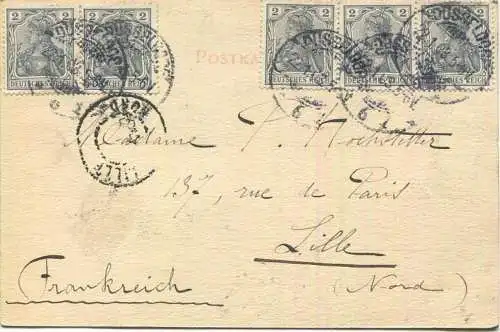 2 2 2 2 2
DEUTSCHES REICH DEUTSCHES REICH DEUTSCHES REICH DEUTSCHES REICH DEUTSCHES REICH
DÜSSELDORF
POSTKA
LILLE
NORD
Madame P. Hochstetter
137, rue de Paris
Lille
Frankreich (Nord)